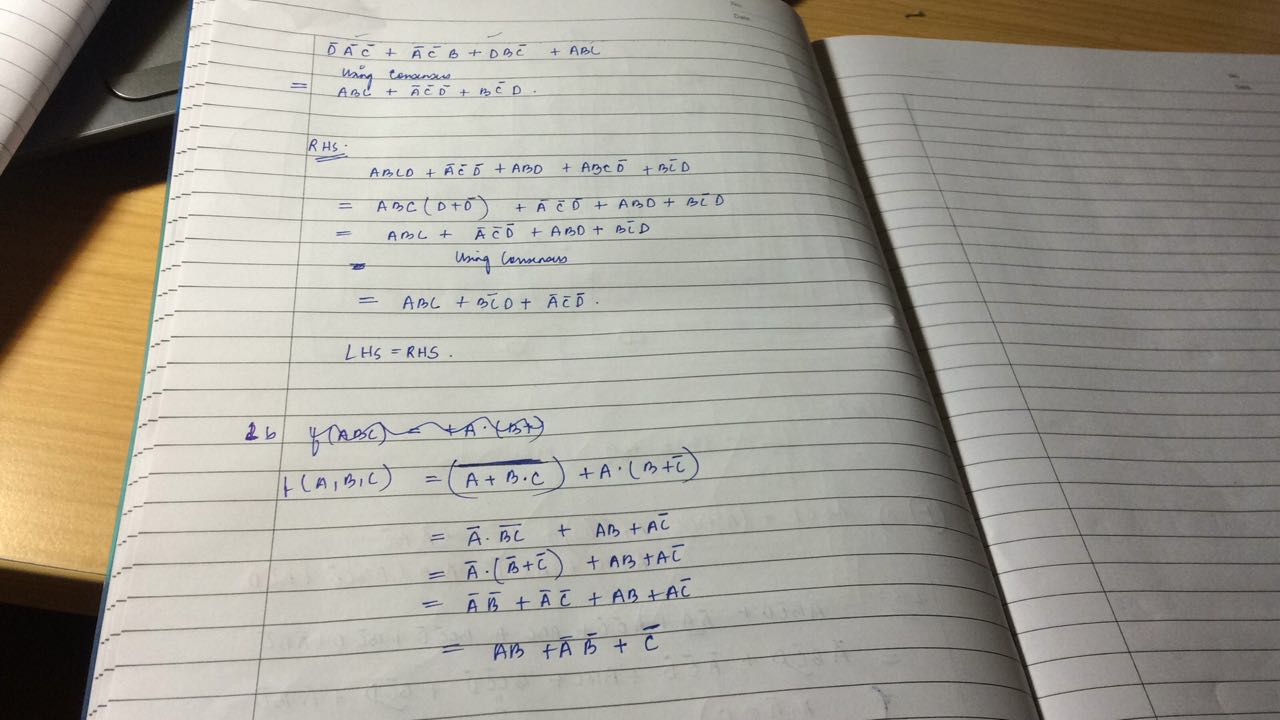 D̄ĀC̄ + ĀC̄B + DBC̄ + ABC
Using Consensus
= ABC + ĀC̄D̄ + BC̄D.
RHS.
ABCD + ĀC̄D̄ + ABD + ABCD̄ + BC̄D
= ABC(D+D̄) + ĀC̄D̄ + ABD + BC̄D
= ABC + ĀC̄D̄ + ABD + BC̄D
Using Consensus
= ABC + BC̄D + ĀC̄D̄.
LHS = RHS.
2b f(ABC) = +A·(B+)
f(A,B,C) = (A̅ ̅+̅ ̅B̅·̅C̅) + A·(B+C̄)
= Ā·B̅C̅ + AB + AC̄
= Ā·(B̄+C̄) + AB + AC̄
= ĀB̄ + ĀC̄ + AB + AC̄
= AB + ĀB̄ + C̄
No.
Date
No.
Date